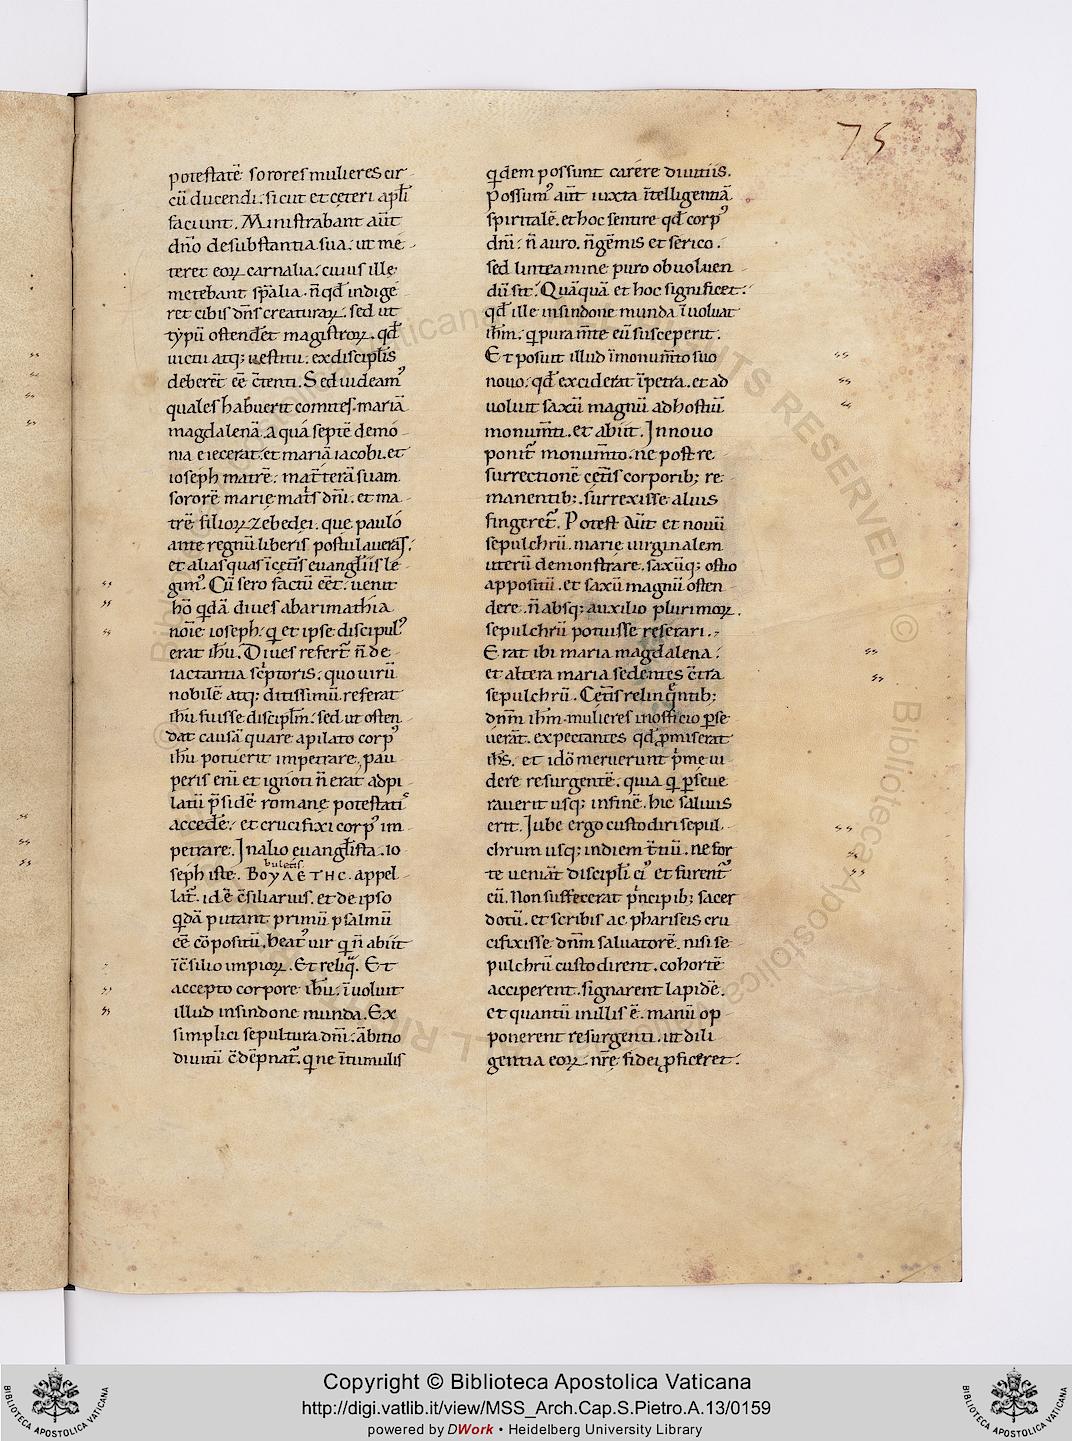 75
potestatē sorores mulieres cir
cū ducendi. sicut et ceteri apłi
faciunt. Ministrabant aūt
dn̄o de substantia sua. ut me
teret eoꝝ carnalia. cuius ille
metebant sp̄alia. n̄ qđ indige
ret cibis dn̄s creaturaꝝ. sed ut
typū ostenderet magistroꝝ. qđ
uictu atq; uestitu. ex disciplīs
deberēt ēē c̄tenti. Sed uideamꝰ
quales habuerit comites. mariā
magdalenā. a qua septē demo
nia eiecerat. et mariā iacobi. et
ioseph matrē. mat̄terā suam
sororē marie mat̄s dn̄i. et ma
trē filioꝝ zebedei. que paulo
ante regnū liberis postulauerat.
et alias quas ī cet̄is euangł̄iis le
gimꝰ. Cū sero factū eēt. uenit
hō qdā diues ab arimathia
nōie ioseph. q et ipse discipulꝰ
erat ih̄u. Diues refert̄ n̄ de
iactantia sc̄ptoris. quo uirū
nobilē atq; ditissimū referat
ih̄u fuisse discipłm. sed ut osten
dat causā quare a pilato corpꝰ
ih̄u potuerit impetrare. pau
peris enī et ignoti n̄ erat ad pi
latū p̄sidē romane potestatis
accede. et crucifixi corpꝰ im
petrare. In alio euangłista. io
buletis
seph iste. ΒΟΥΛΕΤΗC. appel
lat̄. id ē c̄siliarius. et de ipso
qdā putant primū psalmū
ēē cōpositū. beatꝰ uir q n̄ abiit
ī c̄silio impioꝝ. Et reliq. Et
accepto corpore ih̄u. īuoluit
illud in sindone munda. Ex
simplici sepultura dn̄i. ābitio
diuitū c̄dēpnat̄. q ne ī tumulis
qdem possunt carere diuitiis.
Possumꝰ aūt iuxta ītelligentiā
spiritalē. et hoc sentire qđ corpꝰ
dn̄i. n̄ auro. n̄ gēmis et serico.
sed linteamine puro obuoluen
dū sit. Quāquā et hoc significet.
qđ ille in sindone munda īuoluat
ih̄m. q pura mt̄e eū susceperit.
Et posuit illud ī monumt̄o suo
nouo. qđ exciderat ī petra. et ad
uoluit saxū magnū ad hostiū
monumt̄i. et abiit. In nouo
ponit̄ monumt̄o. ne post re
surrectionē cet̄is corporib; re
manentib;. surrexisse alius
fingeret̄. Potest aūt et nouū
sepulchrū. marie uirginalem
uterū demonstrare. saxūq; ostio
appositū. et saxū magnū osten
dere. n̄ absq; auxilio plurimoꝝ.
sepulchrū potuisse reserari.
Erat ibi maria magdalena.
et altera maria sedentes c̄tra
sepulchrū. Cet̄is relinqntib;
dn̄m ih̄m. mulieres in officio p̄se
uerāt. expectantes qđ p̄miserat
ih̄s. et idō meruerunt p̄me ui
dere resurgentē. quia q p̄seue
rauerit usq; in finē. hic saluus
erit. Iube ergo custodiri sepul
chrum usq; in diem t̄tiū. ne for
te ueniāt discipłi eiꝰ et furent̄
eū. Non suffecerat p̄ncipib; sacer
dotū. et scribis ac phariseis cru
cifixisse dn̄m saluatorē. nisi se
pulchrū custodirent. cohortē
acciperent. signarent lapidē.
et quantū in illis ē. manū op
ponerent resurgenti. ut dili
gentia eoꝝ. nr̄e fidei p̄ficeret.
Copyright © Biblioteca Apostolica Vaticana
http://digi.vatlib.it/view/MSS_Arch.Cap.S.Pietro.A.13/0159
powered by DWork • Heidelberg University Library